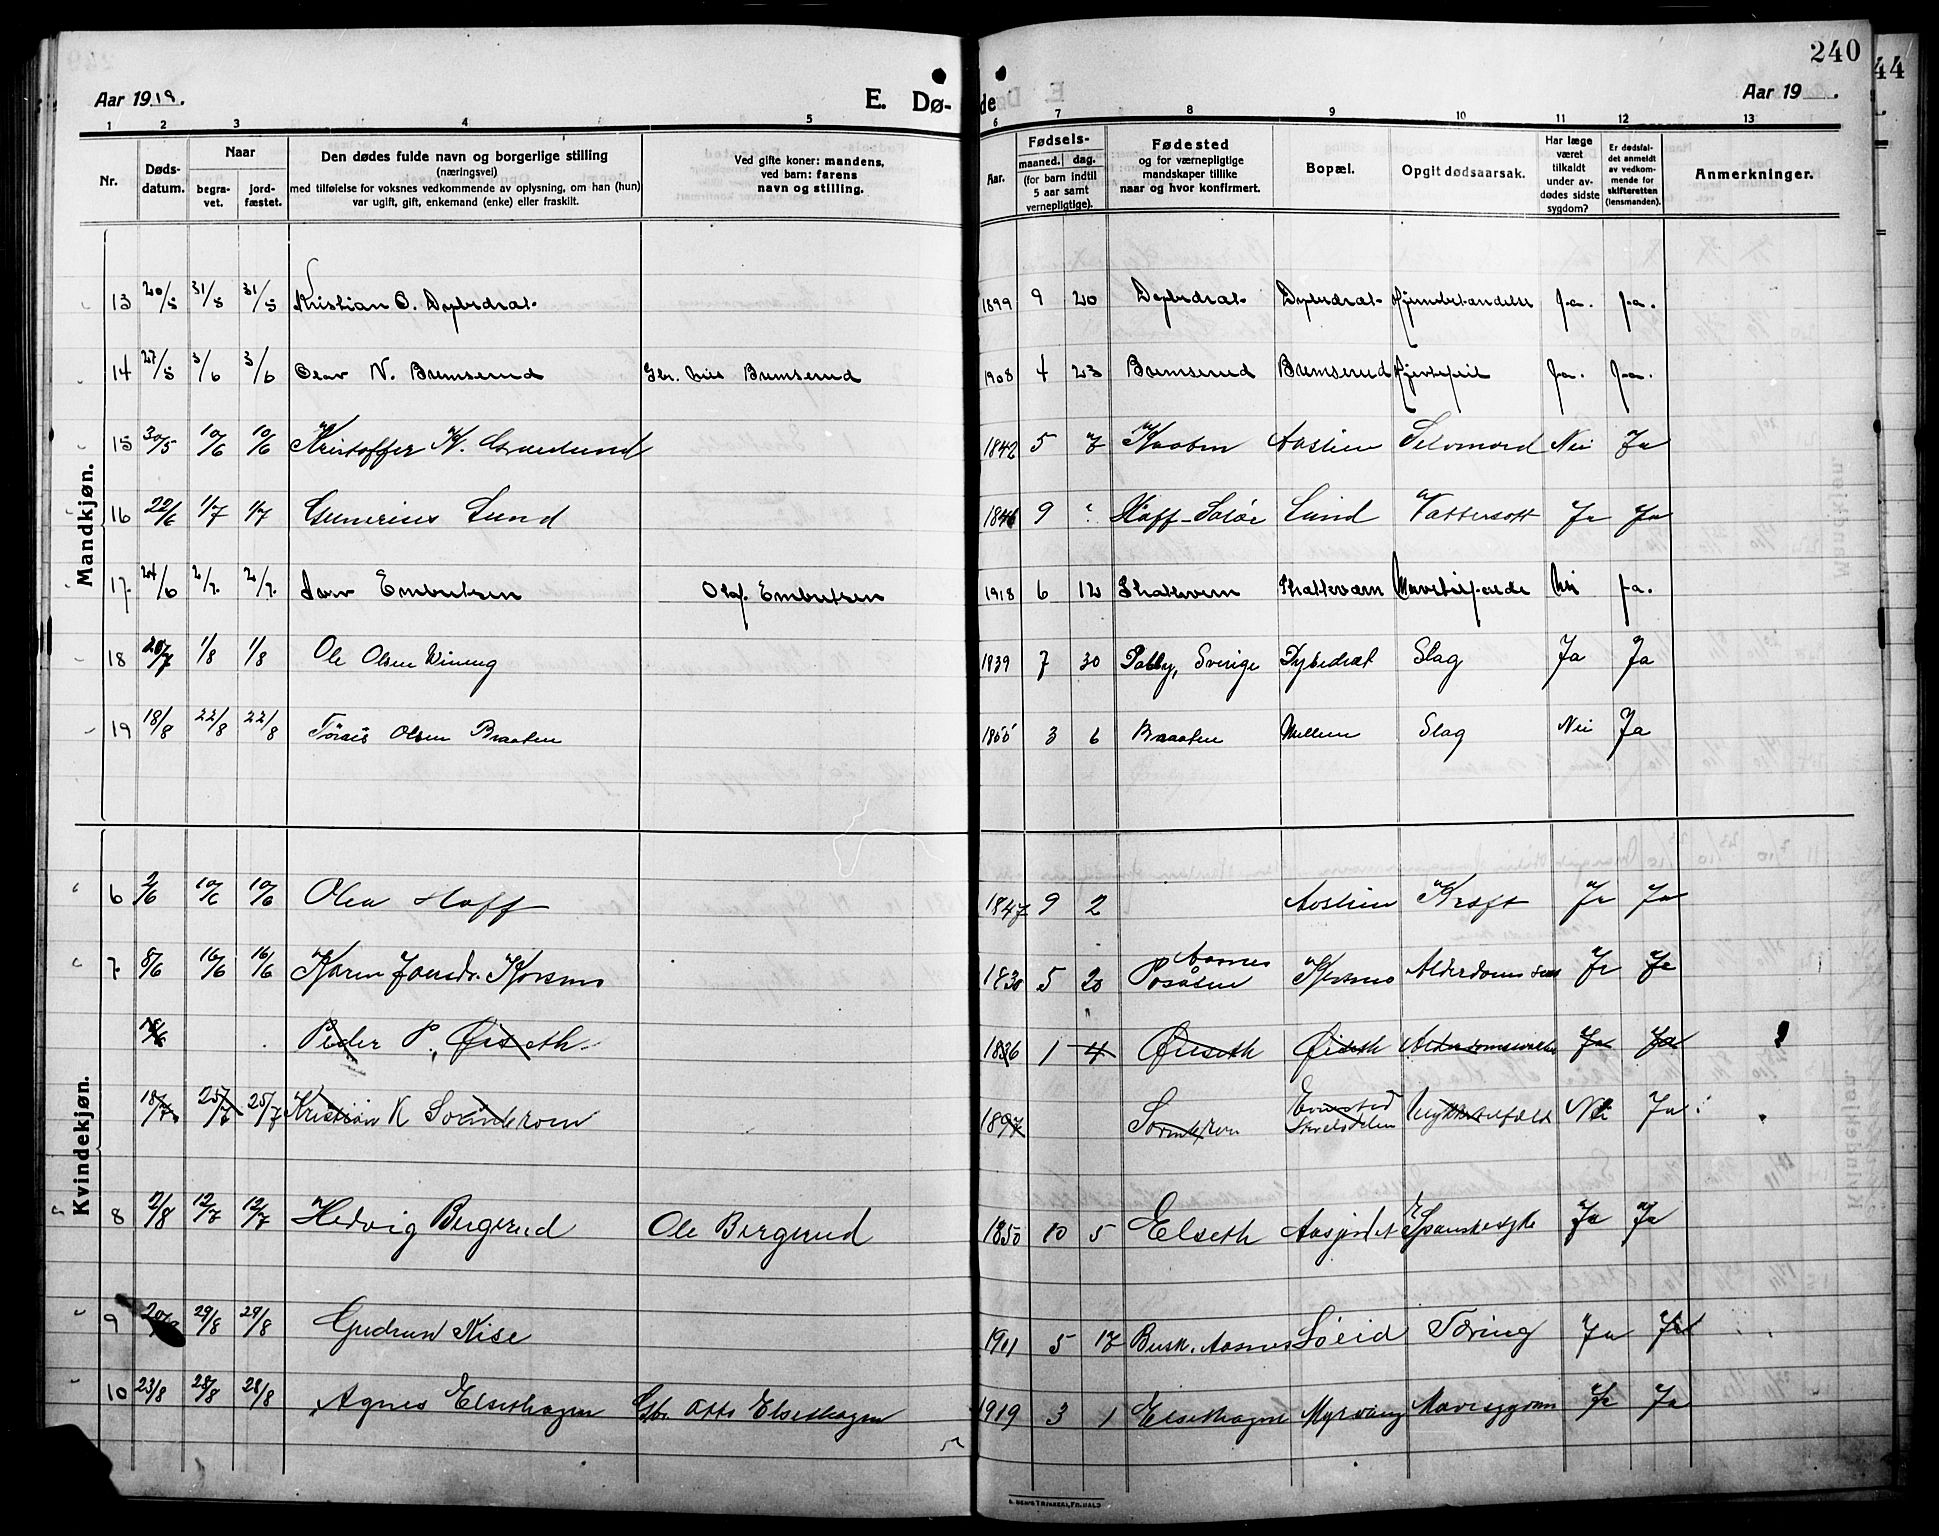 240
44
Aar 1919.
E. Dø-
de
Aar 19 .
1 2 3 4 5 6 7 8 9 10 11 12 13
Nr.
Døds-
datum.
Naar
begra-
vet.
jord-
fæstet.
Den dødes fulde navn og borgerlige stilling
(næringsvei)
med tilføielse for voksnes vedkommende av oplysning, om han (hun)
var ugift, gift, enkemand (enke) eller fraskilt.
Ved gifte koner: mandens,
ved barn: farens
navn og stilling.
Aar.
Fødsels-
maaned. dag.
(for barn indtil
5 aar samt
vernepligtige).
Fødested
og for værnepligtige
mandskaper tillike
naar og hvor konfirmert.
Bopæl.
Opgit dødsaarsak.
Har læge
været
tilkaldt
under av-
dødes sidste
sygdom?
Er dødsfal-
det anmeldt
av vedkom-
mende for
skifteretten
(lensmanden).
Anmerkninger.
Mandkjøn.
13 20/5 31/5 31/5 Kristian O. Dybedrat 1899 9 20 Dybedrat Dybedrat ja. ja.
14 27/5 3/6 3/6 Olav N. Bæmserud Bæmserud 1908 4 23 Bæmserud Bæmserud Hjertefeil ja. ja.
15 30/5 10/6 10/6 Kristoffer K. 1842 5 7 Aaslien Selvmord Nei Ja
16 22/6 1/7 1/7 Gunerius Lund 9 Hoff-Soløe Lund Vattersott Ja Ja
17 24/6 2/7. 2/7. Embretsen Olaf Embretsen 1918 6 12 Skattevern Skattevern Nei ja.
18 1/8 1/8 Ole Olsen Wining 1839 7 30 Sverige Dybedræt Slag Ja Ja
19 18/8 22/8 22/8 Olsen Braaten 3 6 Braaten Mellem Slag Nei Ja
Kvindekjøn.
6 2/6 10/6 10/6 Olea Hoff 1847 9 2 Aaslien Kræft Ja Ja
7 8/6 16/6 16/6 Karen Jonsdr. Korsmo 1830 5 20 Aasnes Korsmo Ja Ja
Peder P. Øiseth 1836 1 4 Øiseth Øiseth Ja Ja
18/7 25/7 25/7 Kristian K 1897 Nei Ja
8 2/8 12/7 12/7 Hedvig Bergerud Ole Bergerud 1850 10 5 Elseth Aasjordet Spanskesyke Ja Ja
9 29/8 29/8 Gudrun Kise 1911 5 17 Busk. Aasnes Søeid Tæring Ja Ja
10 23/8 28/8 28/8 Agnes Elsethagen Gbr. Otto Elsethagen 1919 3 1 Elsethagen Myrvang Mavesygdom Ja Ja